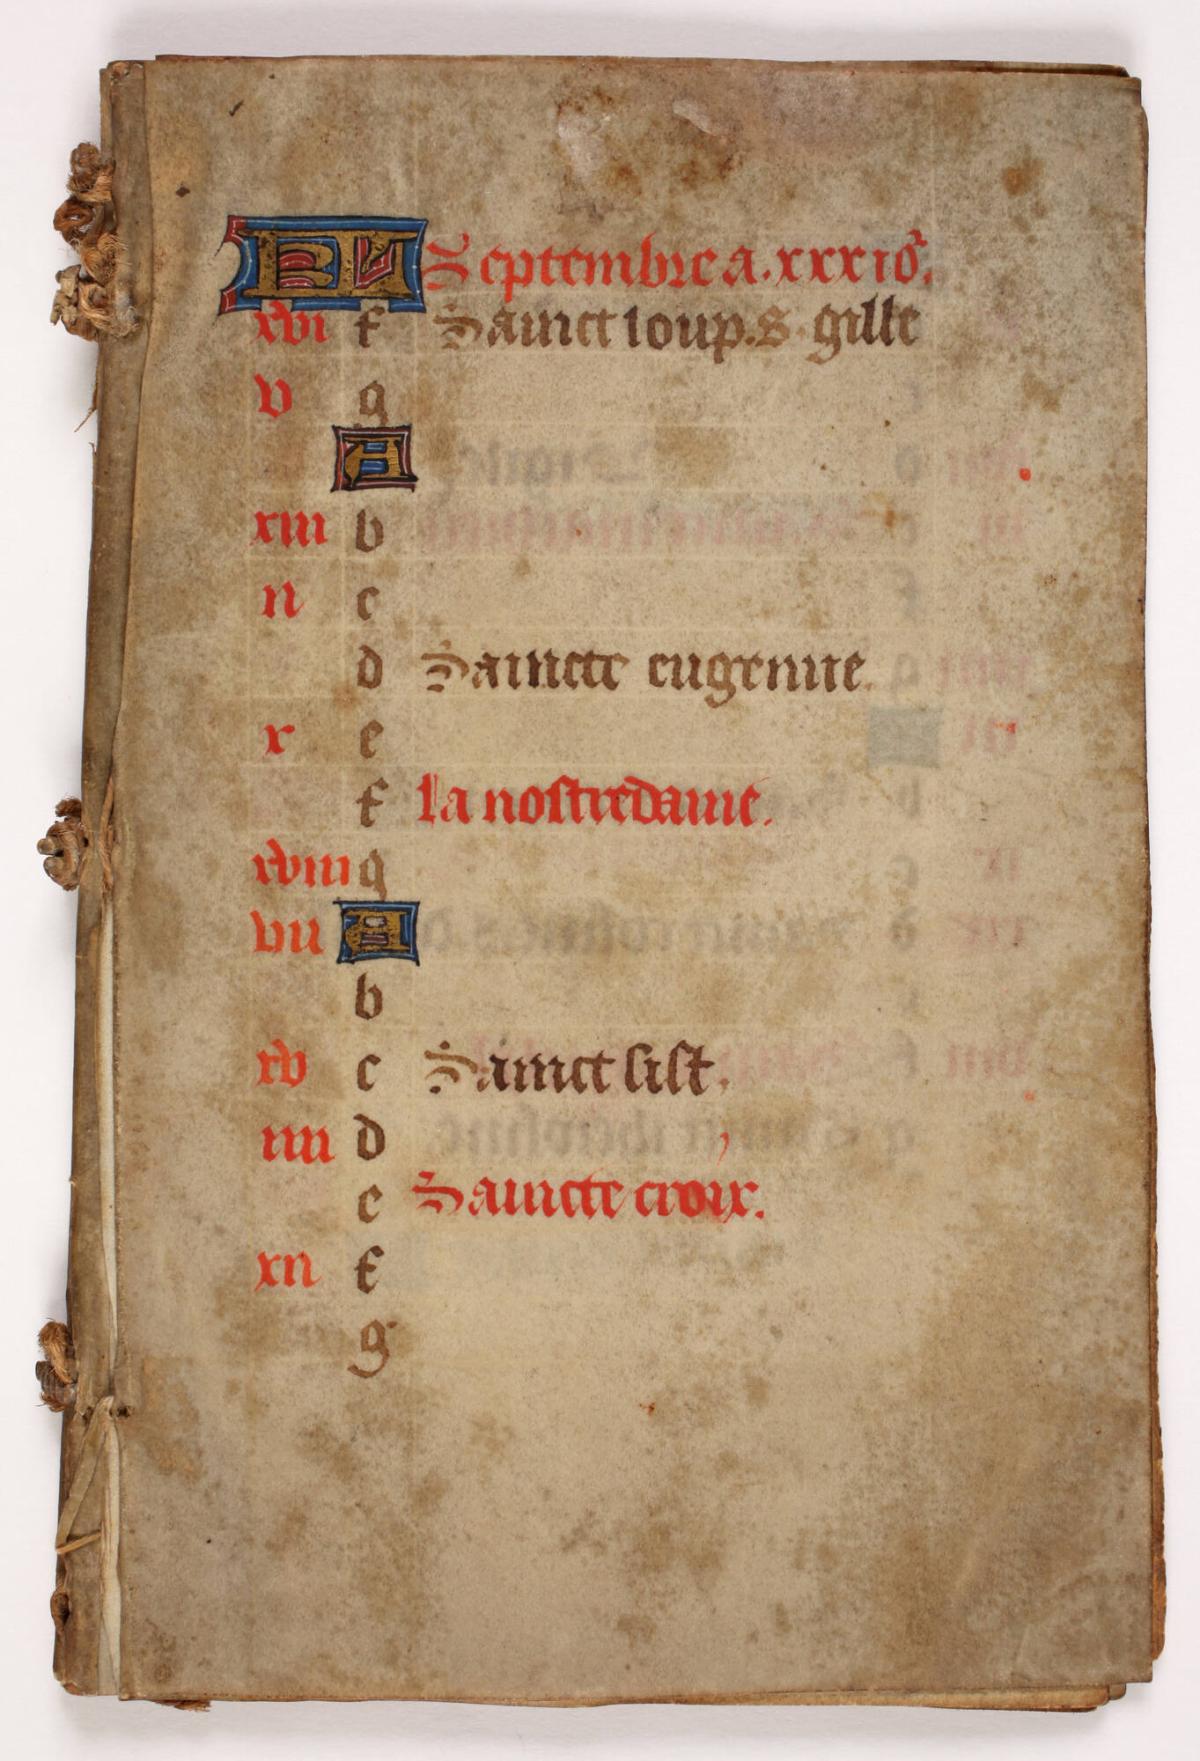 KL Septembre a. xxx iors.
xvi f Sainct loup. s. gille
v g
A
xiii b
ii c
d Saincte eugenme.
x e
f la nostredame.
xviii g
vii A
b
xv c Sainct sist.
iiii d
e Saincte croix.
xii f
g